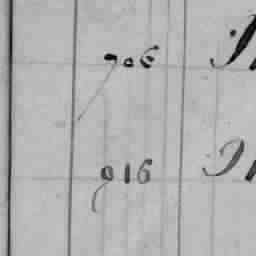 706
916